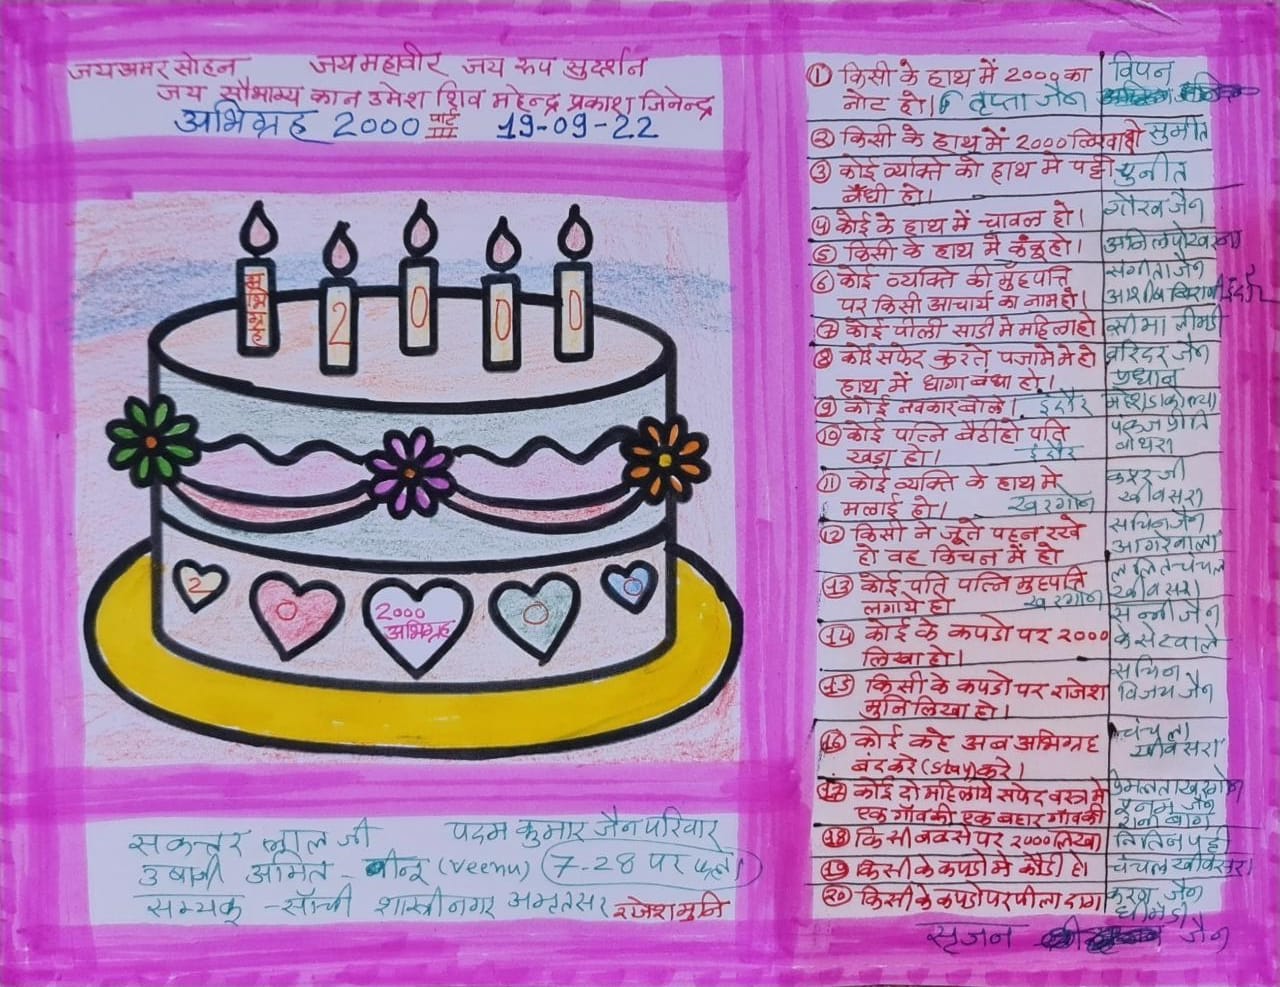 जय अमर सोहन जय महावीर जय रूप सुदर्शन
जय सौभाग्य कान उमेश शिव महेन्द्र प्रकाश जिनेन्द्र
अभिग्रह 2000 पार्ट III 19-09-22
अभिग्रह
2 0 0 0
2 0 2000 0 0
अभिग्रह
सकत्तर लाल जी पदम कुमार जैन परिवार
अमित - वीनू (Veenu) 7-28 पर फले।
सम्यक् - साँची शास्त्रीनगर अमृतसर राजेश मुनि
① किसी के हाथ में 2000 का विपन
नोट हो। तृप्ता जैन
② किसी के हाथ में 2000 लिखा हो सुमीत
③ कोई व्यक्ति को हाथ मे पट्टी पुनीत
बँधी हो।
④ कोई के हाथ में चावल हो। गौरव जैन
⑤ किसी के हाथ में कंकू हो। अनिल पोखरना
⑥ कोई व्यक्ति की मुँहपत्ति संगीता जैन
पर किसी आचार्य का नाम हो।
⑦ कोई पीली साडी मे महिला हो सीमा
⑧ कोई सफेद कुरते पजामे मे हो वरिंदर जैन
हाथ में धागा बंधा हो। प्रधान
⑨ कोई नवकार बोले। इंदौर
⑩ कोई पत्नि बैठी हो पति
खड़ा हो। इंदौर बोथरा
⑪ कोई व्यक्ति के हाथ मे
मलाई हो। खरगोन खीवसरा
⑫ किसी ने जूते पहन रखे सचिन जैन
हो वह किचन में हो
⑬ कोई पति पत्नि मुहपत्ति
लगाये हो खरगोन खीवसरा
⑭ कोई के कपडो पर 2000 सन्नी जैन
लिखा हो। केसेट वाले
⑮ किसी के कपडो पर राजेश सचिन
मुनि लिखा हो। विजय जैन
⑯ कोई कहे अब अभिग्रह चंचला
बंद करे (Stay) करे। खीवसरा
⑰ कोई दो महिलाये सफेद वस्त्र मे
एक गाँव की एक बहार गाँव की
⑱ किसी बक्से पर 2000 लिखा
⑲ किसी के कपडो में कौडी हो। चंचल खीवसरा
⑳ किसी के कपडो पर पीला दाग करण जैन
सृजन जैन